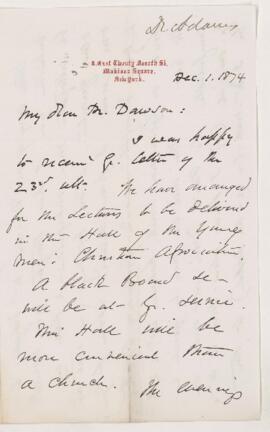 Dr Adams
8. West Twenty Fourth St.
Madison Square,
New York.
Dec. 1. 1874
My dear Dr. Dawson:
I was happy
to receive yr. letter of the
23rd. ult. We have arranged
for the Lectures to be delivered
in the Hall of the Young
Men's Christian Association.
A black Board &c
will be at yr. service.
This Hall will be
more convenient than
a church. The evenings